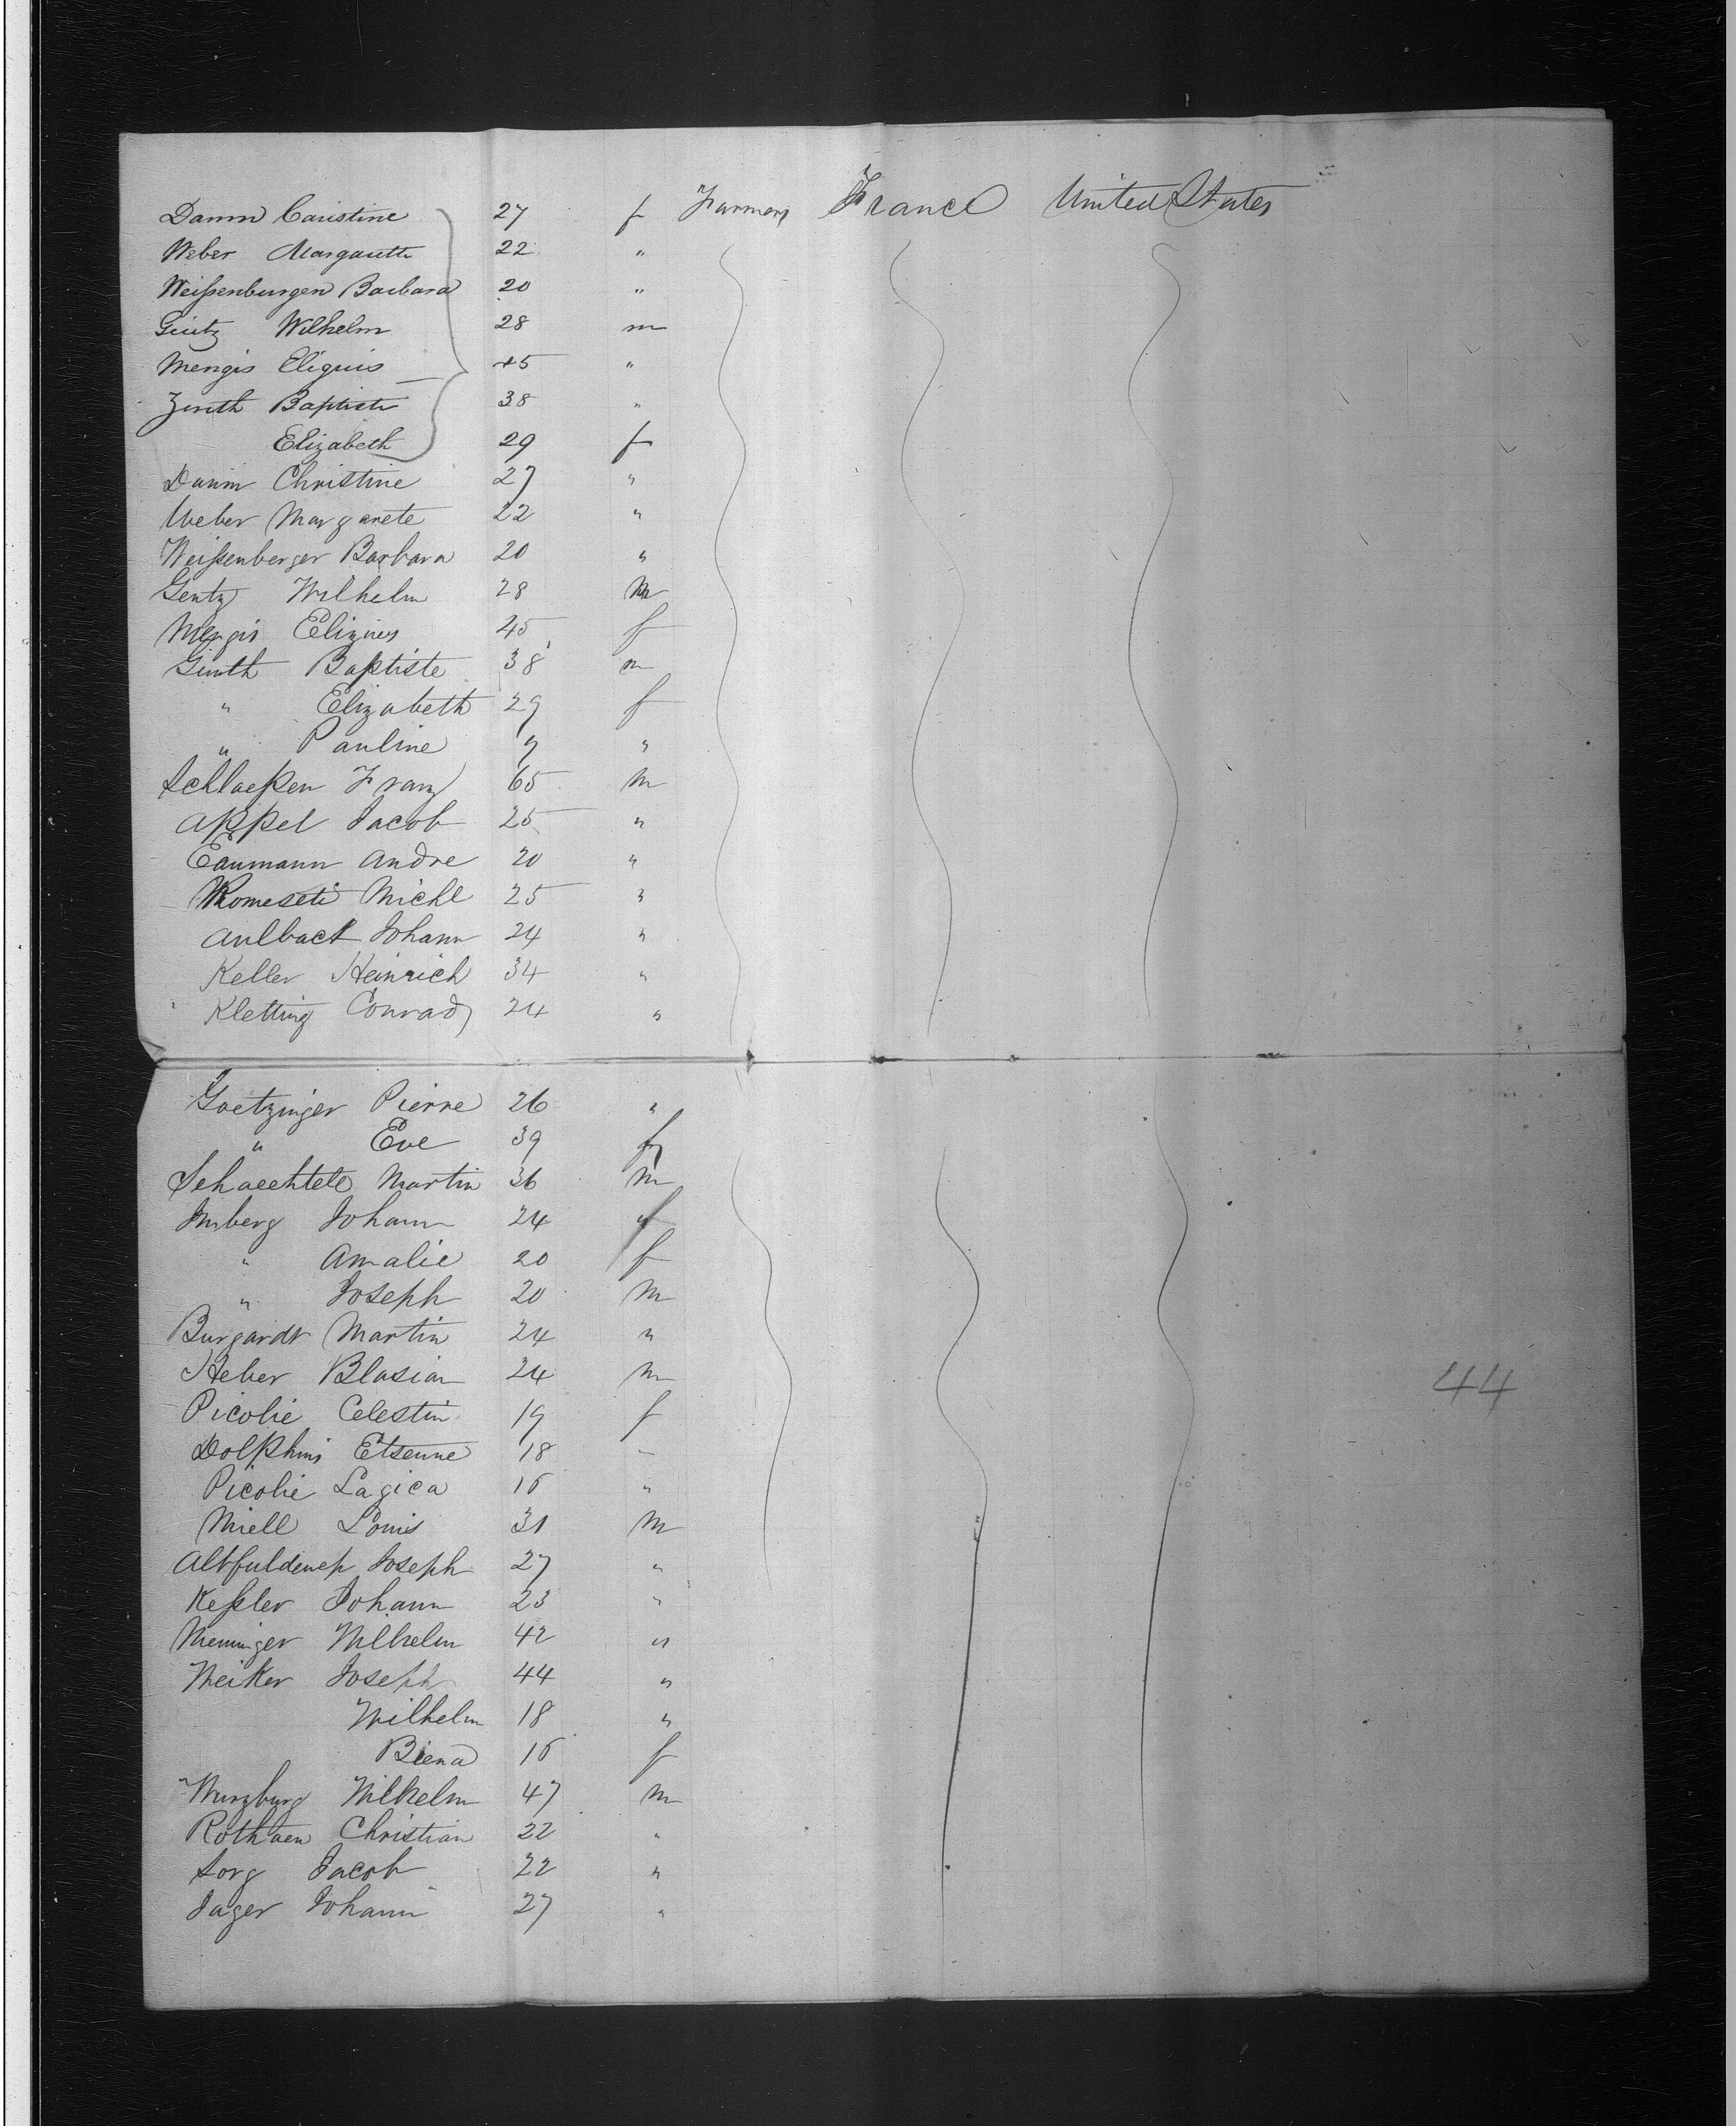 Damm Caristine 27 f Farmers France United States
Weber Margarette 22 "
Weißenburgen Barbara 20 "
Gintz Wilhelm 28 m
Mengis Eligius 45 "
Zinth Baptiste 38 "
Elizabeth 29 f
Damm Christine 27 "
Weber Margarete 22 "
Weißenberger Barbara 20 "
Gentz Wilhelm 28 m
Mengis Eligius 45 f
Ginth Baptiste 38 m
" Elizabeth 29 f
" Pauline 9 "
Schlaeßen Franz 65 m
Appel Jacob 25 "
Eaumann Andre 20 "
Michl 25 "
Aulback Johann 24 "
Keller Heinrich 34 "
Kletting Conrad 24 "
Goetzinger Pierre 26 "
" Eve 39 f
Schaechtele Martin 36 m
Imberg Johann 24 "
" Amalie 20 f
" Joseph 20 m
Burgardt Martin 24 "
Heber Blasian 24 m
Picolie Celestin 19 f
Dolphins Etsenne 18 "
Picolie Lagica 16 "
Miell Louis 31 m
Joseph 27 "
Keßler Johann 23 "
Menninger Wilhelm 42 "
Meiker Joseph 44 "
Wilhelm 18 "
Biena 16 f
Wurzburg Wilhelm 47 m
Rothaen Christian 22 "
Sorg Jacob 22 "
Jager Johann 27 "
44